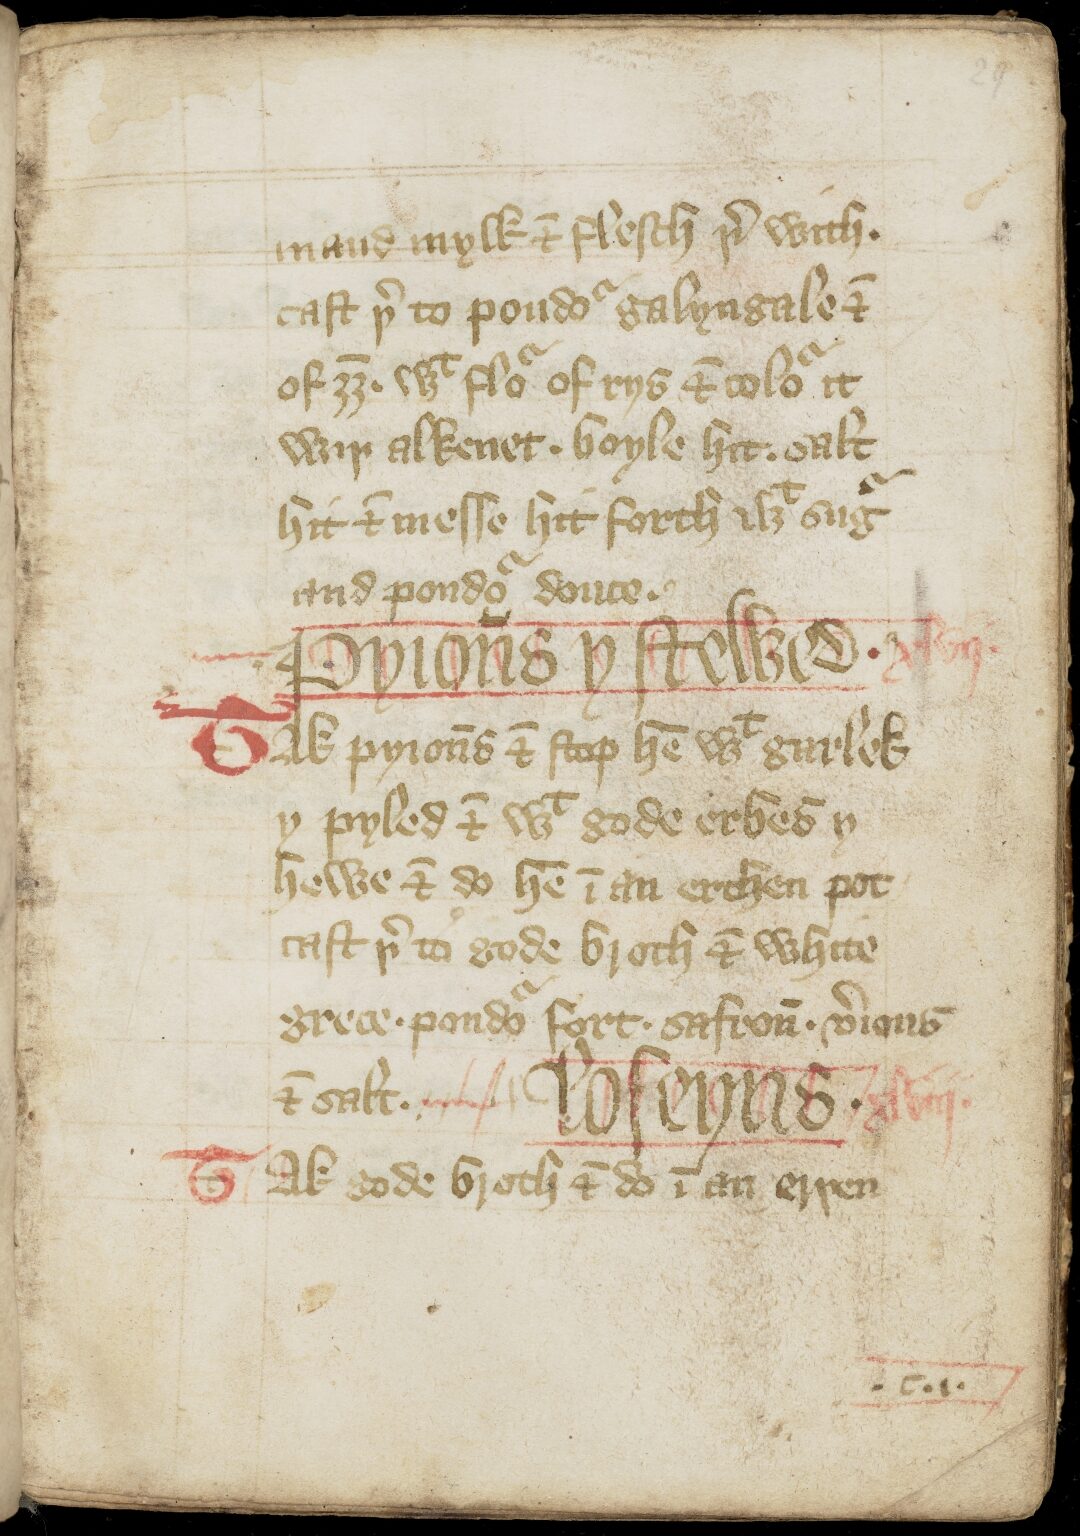 29
maud mylk ⁊ flesch þ̉ with.
cast þ̉ to poudoᷓ galyngale ⁊
of ʒʒ̄. wᵗ floᷓ of rys ⁊ coloᷓ it
wiþ alkenet. boyle hit. salt
hit ⁊ messe hit forth wᵗ sugᷓ
and poudoᷓ douce.
Pyioūs y stewed. xlvij.
Tak pyioūs ⁊ stop hē wᵗ garlek
y pyled ⁊ wᵗ gode erbes y
hewe ⁊ do hē ī an erthen pot
cast þ̉ to gode broth ⁊ white
grece. poudoᷓ fort. safroū. v̉ious
⁊ salt. Loseyns. xlviij.
Tak gode broth ⁊ do ī an erþen
.c.i.